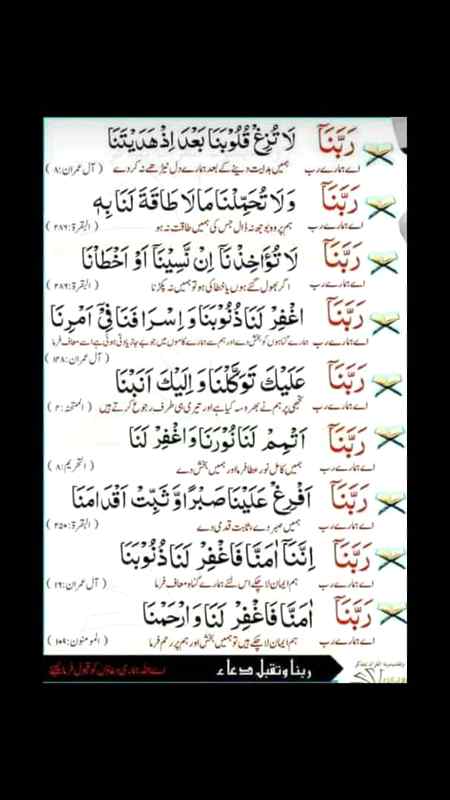 رَبَّنَا لَا تُزِغْ قُلُوْبَنَا بَعْدَ اِذْ هَدَيْتَنَا
اے ہمارے رب ہمیں ہدایت دینے کے بعد ہمارے دل ٹیڑھے نہ کر دے (آل عمران:۸)
رَبَّنَا وَلَا تُحَمِّلْنَا مَا لَا طَاقَةَ لَنَا بِهٖ
اے ہمارے رب ہم پر وہ بوجھ نہ ڈال جس کی ہمیں طاقت نہ ہو (البقرۃ:۲۸۶)
رَبَّنَا لَا تُؤَاخِذْنَآ اِنْ نَّسِيْنَآ اَوْ اَخْطَاْنَا
اے ہمارے رب اگر بھول گئے ہوں یا خطا کی ہو تو ہمیں نہ پکڑنا (البقرۃ:۲۸۶)
رَبَّنَا اغْفِرْ لَنَا ذُنُوْبَنَا وَاِسْرَافَنَا فِيْٓ اَمْرِنَا
اے ہمارے رب ہمارے گناہوں کو بخش دے اور ہم سے ہمارے کاموں میں جو بے جا زیادتی ہوئی ہے اسے معاف فرما
(آل عمران:۱۴۸)
رَبَّنَا عَلَيْكَ تَوَكَّلْنَا وَاِلَيْكَ اَنَبْنَا
اے ہمارے رب تجھی پر ہم نے بھروسہ کیا ہے اور تیری ہی طرف رجوع کرتے ہیں (الممتحنۃ:۴)
رَبَّنَآ اَتْمِمْ لَنَا نُوْرَنَا وَاغْفِرْ لَنَا
اے ہمارے رب ہمیں کامل نور عطا فرما اور ہمیں بخش دے (التحریم:۸)
رَبَّنَآ اَفْرِغْ عَلَيْنَا صَبْرًا وَّثَبِّتْ اَقْدَامَنَا
اے ہمارے رب ہمیں صبر دے، ثابت قدمی دے (البقرۃ:۲۵۰)
رَبَّنَآ اِنَّنَآ اٰمَنَّا فَاغْفِرْ لَنَا ذُنُوْبَنَا
اے ہمارے رب ہم ایمان لا چکے اس لئے ہمارے گناہ معاف فرما (آل عمران:۱۶)
رَبَّنَآ اٰمَنَّا فَاغْفِرْ لَنَا وَارْحَمْنَا
اے ہمارے رب ہم ایمان لا چکے ہیں تو ہمیں بخش اور ہم پر رحم فرما (المومنون:۱۰۹)
ربنا وتقبل دعاء اے اللہ ہماری دعاؤں کو قبول فرما لیجئے